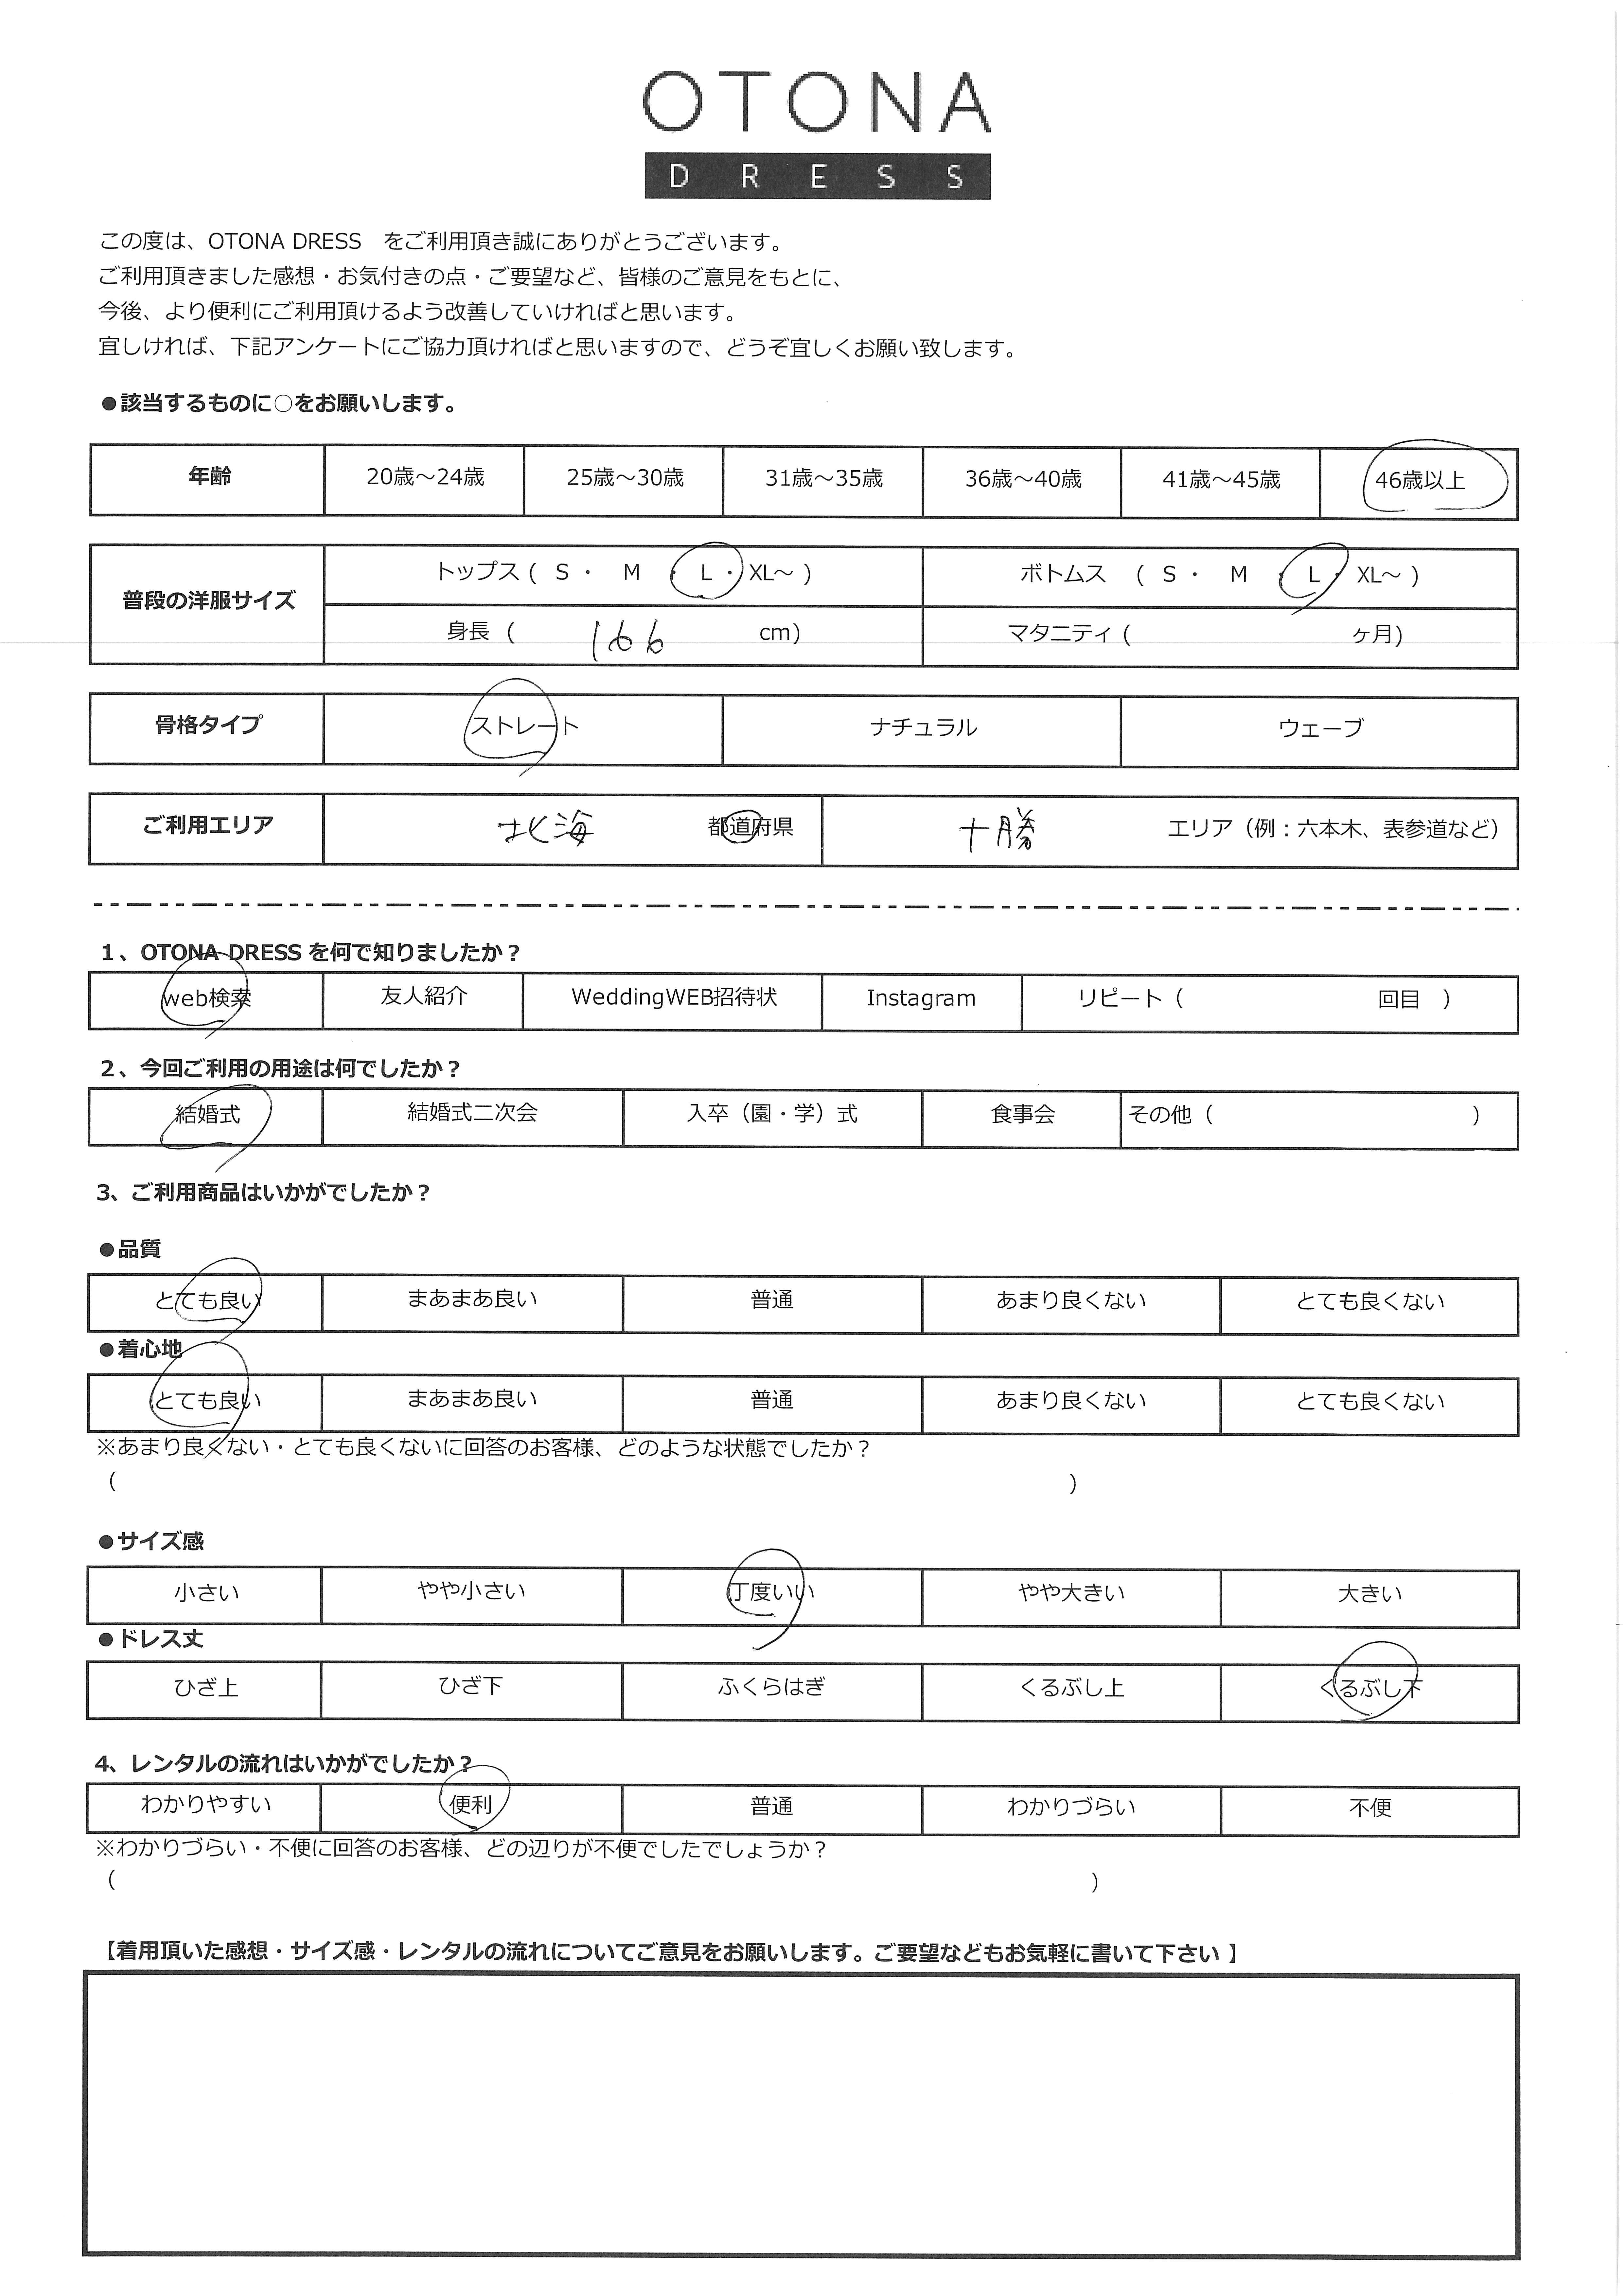 OTONA
DRESS
この度は、OTONA DRESS　をご利用頂き誠にありがとうございます。
ご利用頂きました感想・お気付きの点・ご要望など、皆様のご意見をもとに、
今後、より便利にご利用頂けるよう改善していければと思います。
宜しければ、下記アンケートにご協力頂ければと思いますので、どうぞ宜しくお願い致します。
●該当するものに○をお願いします。
年齢 20歳～24歳 25歳～30歳 31歳～35歳 36歳～40歳 41歳～45歳 46歳以上
普段の洋服サイズ トップス ( S ・ M ・ L ・ XL～ ) ボトムス ( S ・ M ・ L ・ XL～ )
身長 ( 166 cm) マタニティ ( ヶ月)
骨格タイプ ストレート ナチュラル ウェーブ
ご利用エリア 北海 都道府県 十勝 エリア（例：六本木、表参道など）
1、OTONA DRESS を何で知りましたか？
web検索 友人紹介 WeddingWEB招待状 Instagram リピート（ 回目 ）
2、今回ご利用の用途は何でしたか？
結婚式 結婚式二次会 入卒（園・学）式 食事会 その他（ ）
3、ご利用商品はいかがでしたか？
●品質
とても良い まあまあ良い 普通 あまり良くない とても良くない
●着心地
とても良い まあまあ良い 普通 あまり良くない とても良くない
※あまり良くない・とても良くないに回答のお客様、どのような状態でしたか？
（ ）
●サイズ感
小さい やや小さい 丁度いい やや大きい 大きい
●ドレス丈
ひざ上 ひざ下 ふくらはぎ くるぶし上 くるぶし下
4、レンタルの流れはいかがでしたか？
わかりやすい 便利 普通 わかりづらい 不便
※わかりづらい・不便に回答のお客様、どの辺りが不便でしたでしょうか？
（ ）
【着用頂いた感想・サイズ感・レンタルの流れについてご意見をお願いします。ご要望などもお気軽に書いて下さい 】